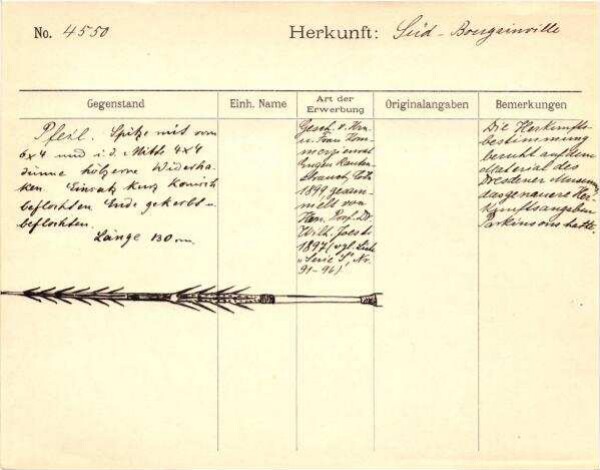 No. 4550
Herkunft: Süd-Bougainville
Gegenstand
Einh. Name
Art der
Erwerbung
Originalangaben
Bemerkungen
Pfeil. Spitze mit vorn
6x4 und i. d. Mitte 4x4
dünne hölzerne Widerha-
ken. Einsatz kurz konisch
beflochten. Ende gekerbt u.
beflochten.
Länge 130 cm.
Gesch. v. Hrn.
u. Frau Kom-
merzienrat
Eugen Rauten-
strauch, Cöln
1899 gesam-
melt von
Hrn. Prof. Dr.
Wilh. Joest
1897 (vgl. Liste
"Serie S", Nr.
91-96)
Die Herkunfts-
bestimmung
beruht auf dem
Material des
Dresdener Museums,
das genauere Her-
kunftsangaben
Parkinsons hatte.